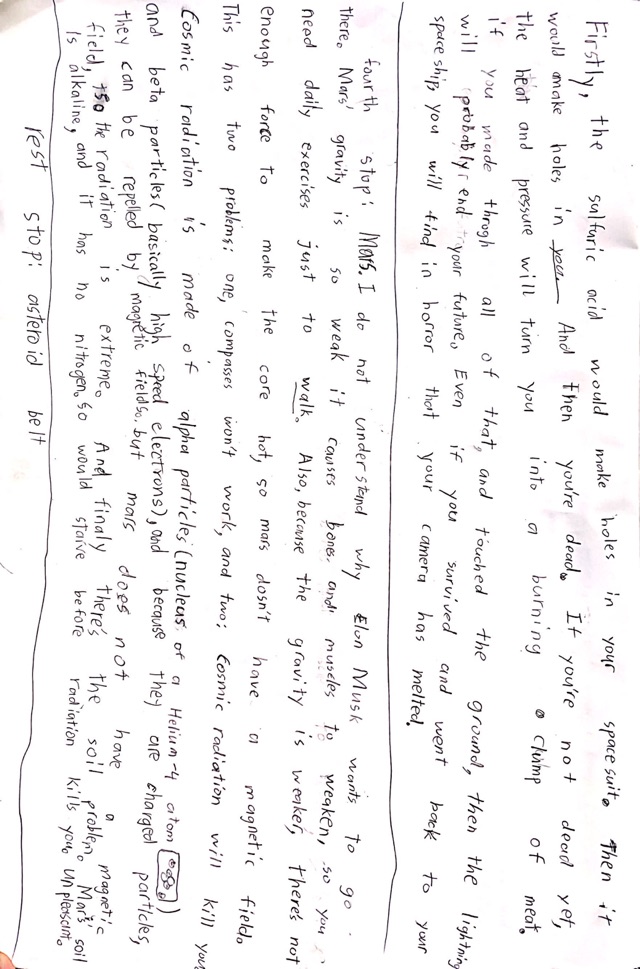 Firstly, the sulfuric acid would make holes in your spacesuit. Then it
would make holes in you. And then you're dead. If you're not dead yet,
the heat and pressure will turn you into a burning chump of meat.
if you made throgh all of that, and touched the ground, then the lightning
will probably end your future. Even if you survived and went back to your
space ship, you will find in horror that your camera has melted.
fourth stop: Mars. I do not understand why Elon Musk wants to go
there. Mars' gravity is so weak it causes bones and muscles to weaken, so you
need daily exercises just to walk. Also, because the gravity is weaker, there's not
enough force to make the core hot, so mars dosn't have a magnetic field.
This has two problems: one, compasses won't work, and two: Cosmic radiation will kill you
Cosmic radiation is made of alpha particles (nucleus of a Helium-4 atom)
and beta particles (basically high speed electrons), and because they are charged particles,
they can be repelled by magnetic fields. but mars does not have a magnetic
field, so the radiation is extreme. And finaly there's the soil problem. Mars' soil
is alkaline, and it has no nitrogen. So would starve before radiation kills you. Unpleasent.
rest stop: asteroid belt